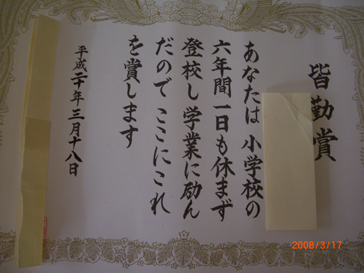 皆勤賞
あなたは 小学校の
六年間一日も休まず
登校し 学業に励ん
だので ここにこれ
を賞します
平成二十年三月十八日
2008/3/17